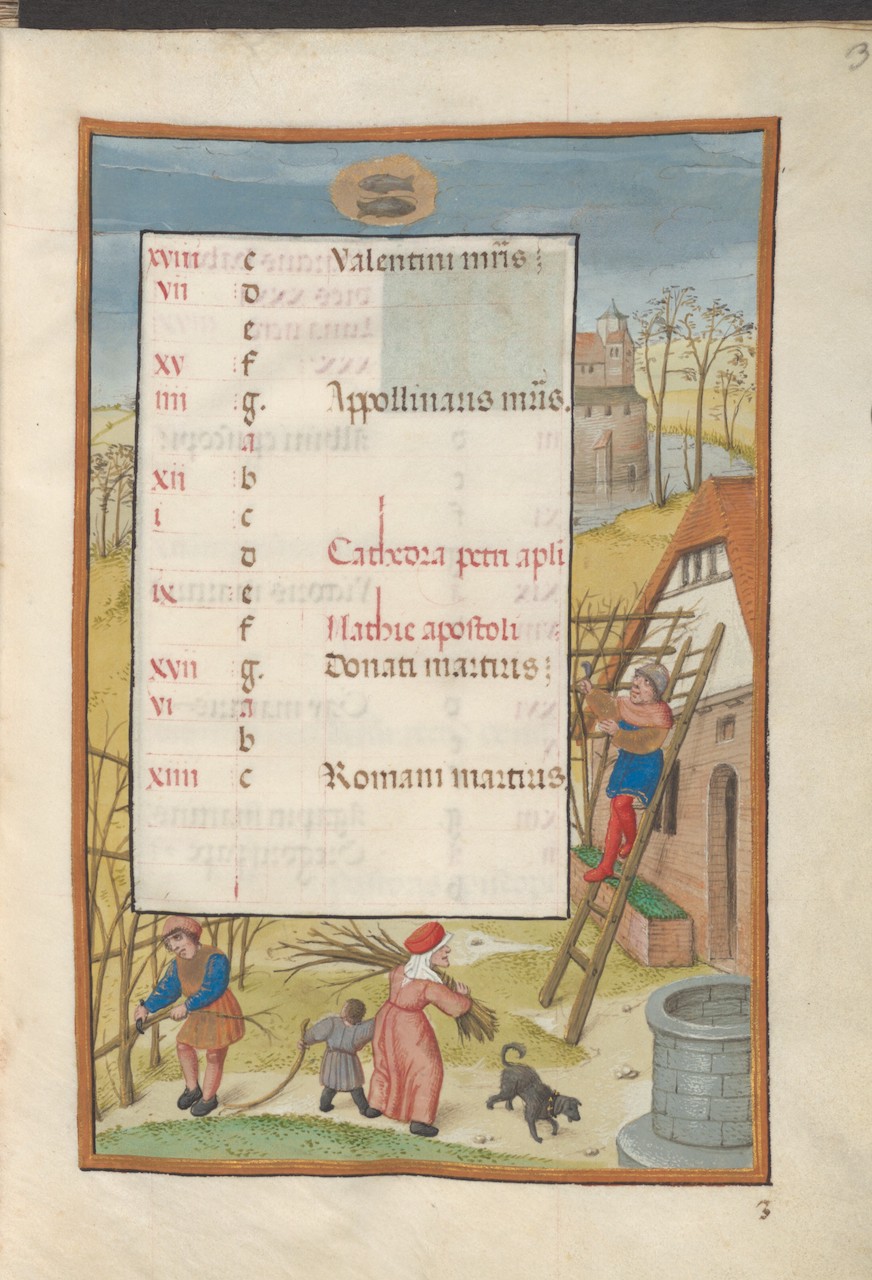 3
xviii c Valentini mris
vii d
e
xv f
iiii g. Appollinaris mris.
a
xii b
i c
d Cathedra petri apli
ix e
f Mathie apostoli
xvii g. Donati martiris
vi a
b
xiiii c Romani martiris
3